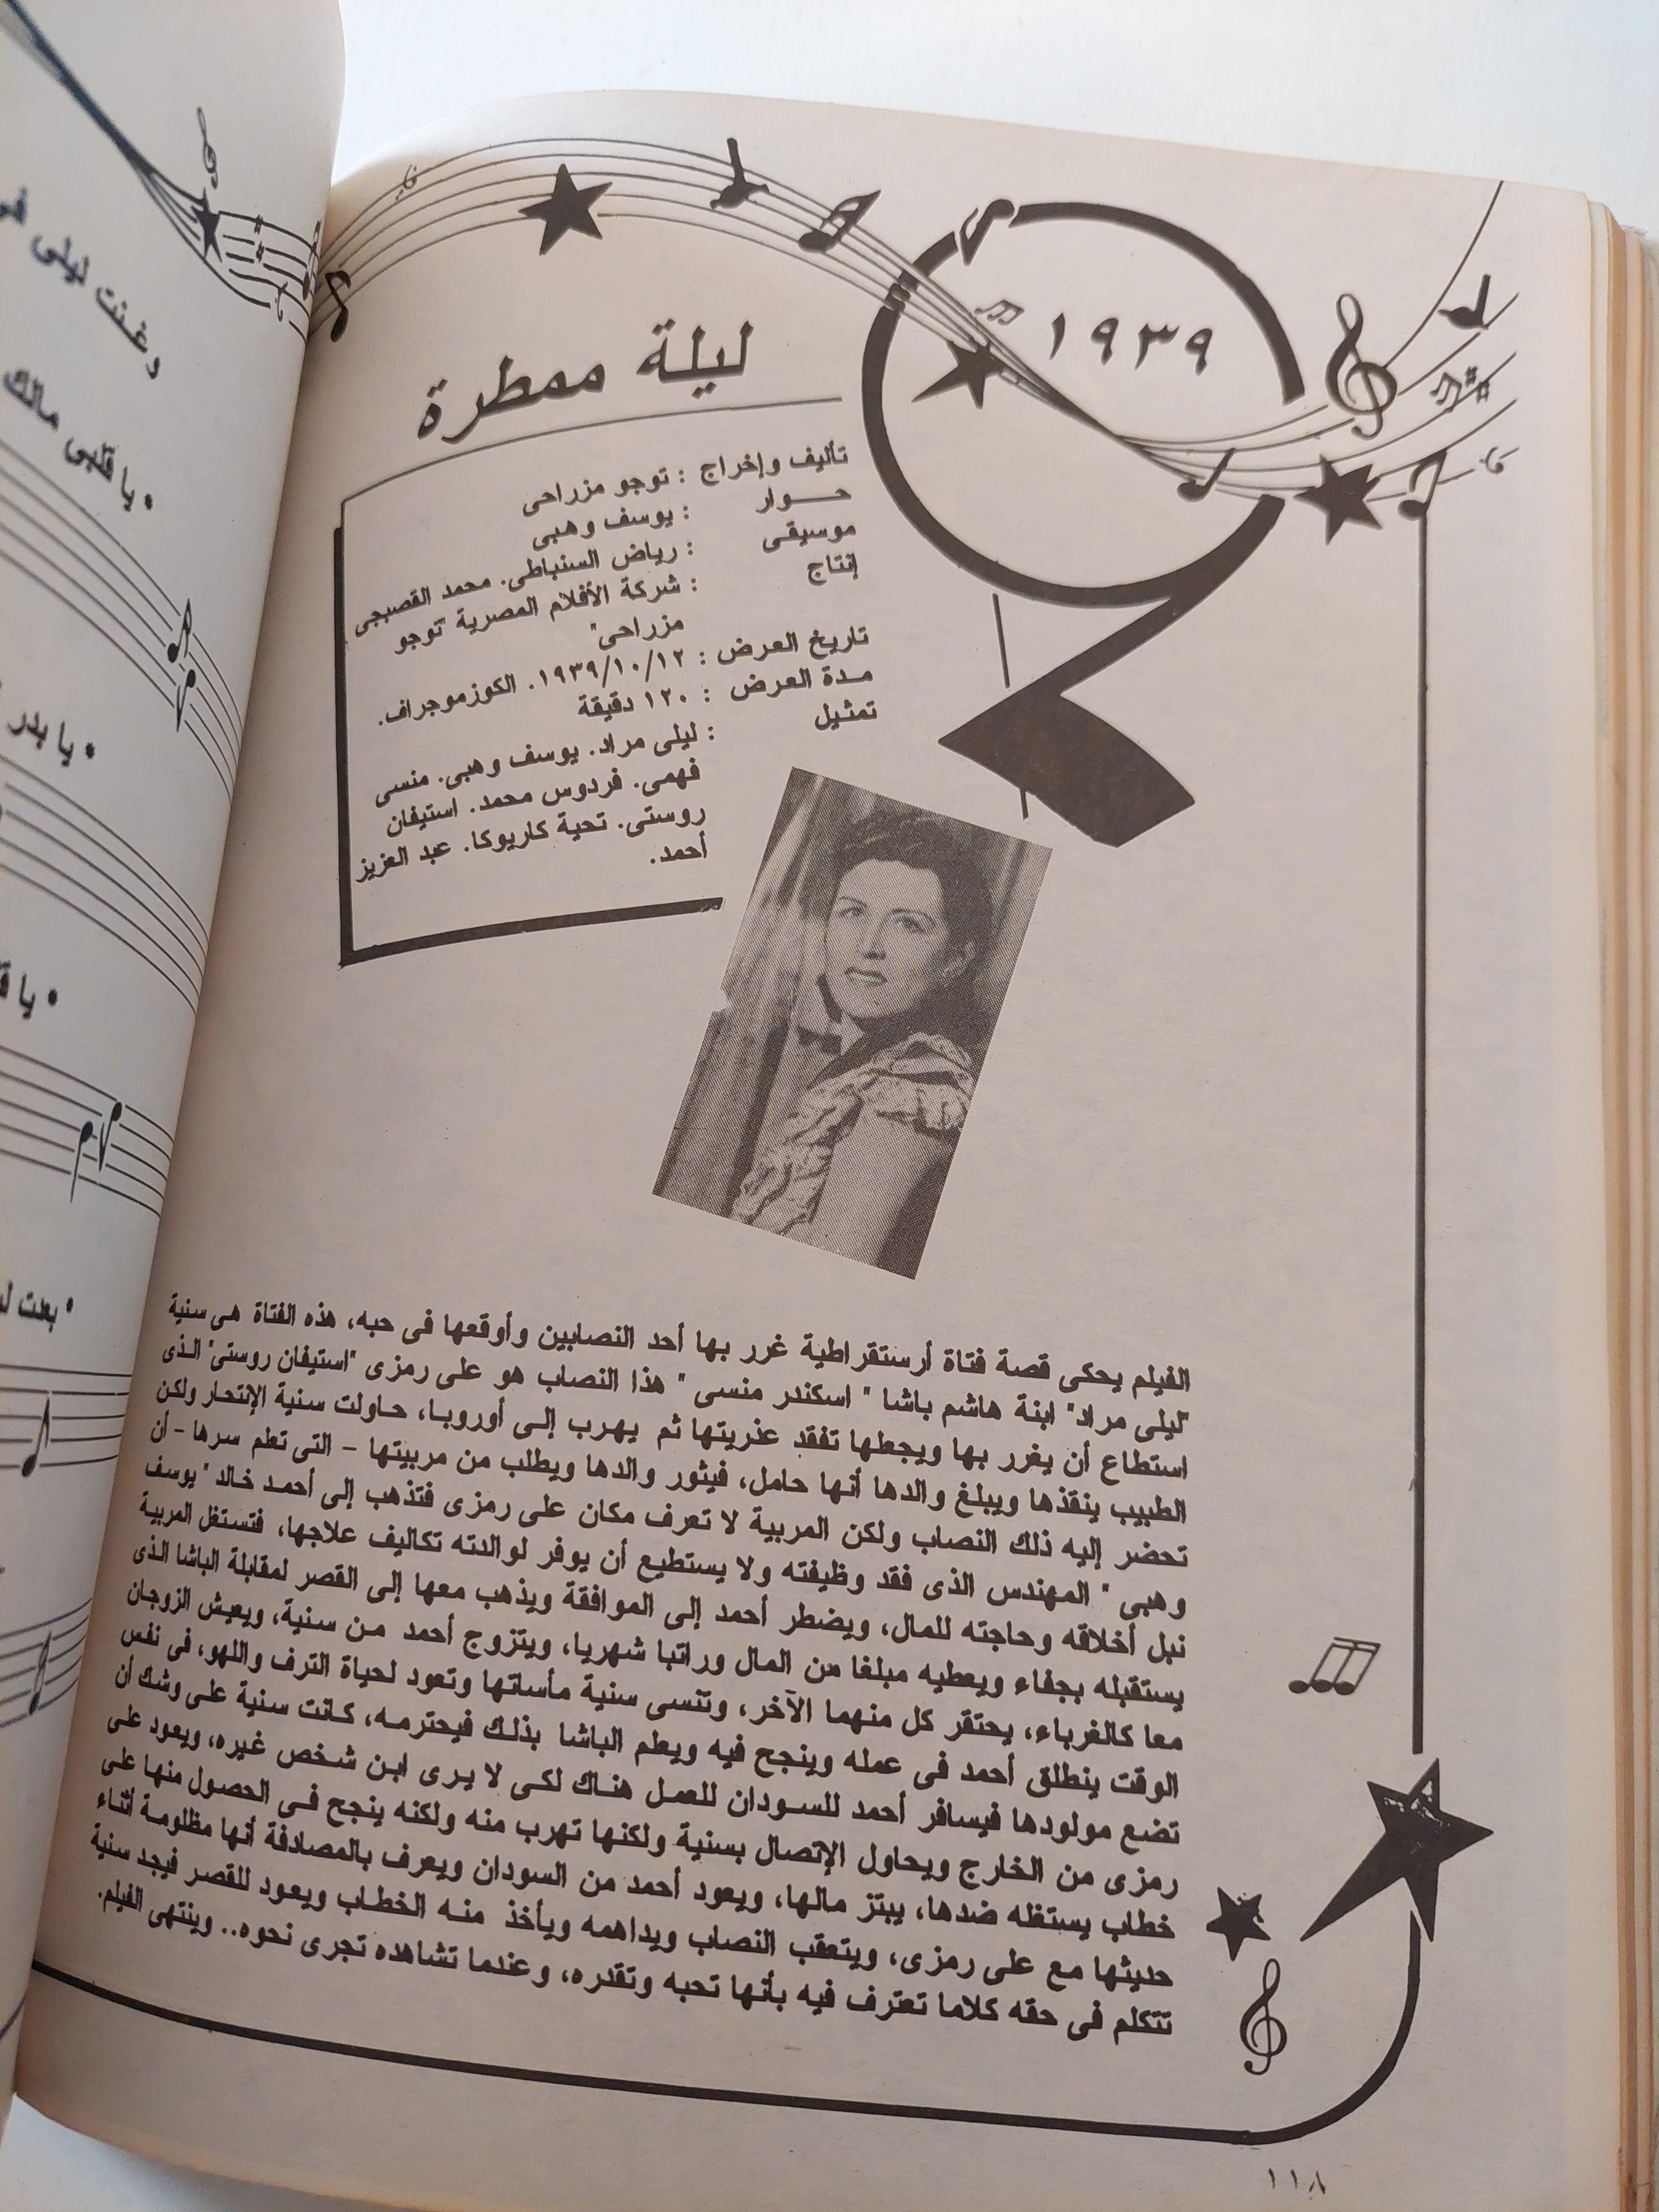 ١٩٣٩
ليلة ممطرة
تأليف وإخراج : توجو مزراحى
حـــوار : يوسف وهبى
موسيقى : رياض السنباطى. محمد القصبجى
إنتاج : شركة الأفلام المصرية "توجو
مزراحى"
تاريخ العرض : ١٩٣٩/١٠/١٢. الكوزموجراف.
مـدة العرض : ١٢٠ دقيقة
تمثـيل : ليلى مراد. يوسف وهبى. منسى
فهمى. فردوس محمد. استيفان
روستى. تحية كاريوكا. عبد العزيز
أحمد.
الفيلم يحكى قصة فتاة أرستقراطية غرر بها أحد النصابين وأوقعها فى حبه، هذه الفتاة هى سنية
"ليلى مراد" ابنة هاشم باشا " اسكندر منسى " هذا النصاب هو على رمزى "استيفان روستى" الذى
استطاع أن يغرر بها ويجعلها تفقد عذريتها ثم يهرب إلى أوروبا، حاولت سنية الإنتحار ولكن
الطبيب ينقذها ويبلغ والدها أنها حامل، فيثور والدها ويطلب من مربيتها - التى تعلم سرها - أن
تحضر إليه ذلك النصاب ولكن المربية لا تعرف مكان على رمزى فتذهب إلى أحمد خالد "يوسف
وهبى " المهندس الذى فقد وظيفته ولا يستطيع أن يوفر لوالدته تكاليف علاجها، فتستغل المربية
نبل أخلاقه وحاجته للمال، ويضطر أحمد إلى الموافقة ويذهب معها إلى القصر لمقابلة الباشا الذى
يستقبله بجفاء ويعطيه مبلغا من المال وراتبا شهريا، ويتزوج أحمد من سنية، ويعيش الزوجان
معا كالغرباء، يحتقر كل منهما الآخر، وتنسى سنية مأساتها وتعود لحياة الترف واللهو، فى نفس
الوقت ينطلق أحمد فى عمله وينجح فيه ويعلم الباشا بذلك فيحترمه، كانت سنية على وشك أن
تضع مولودها فيسافر أحمد للسودان للعمل هناك لكى لا يرى ابن شخص غيره، ويعود على
رمزى من الخارج ويحاول الإتصال بسنية ولكنها تهرب منه ولكنه ينجح فى الحصول منها على
خطاب يستغله ضدها، يبتز مالها، ويعود أحمد من السودان ويعرف بالمصادفة أنها مظلومة أثناء
حديثها مع على رمزى، ويتعقب النصاب ويداهمه ويأخذ منه الخطاب ويعود للقصر فيجد سنية
تتكلم فى حقه كلاما تعترف فيه بأنها تحبه وتقدره، وعندما تشاهده تجرى نحوه.. وينتهى الفيلم.
١١٨
وغنت ليلى
• يا قلبى مالك
• يا بدر
• يا
• بعت